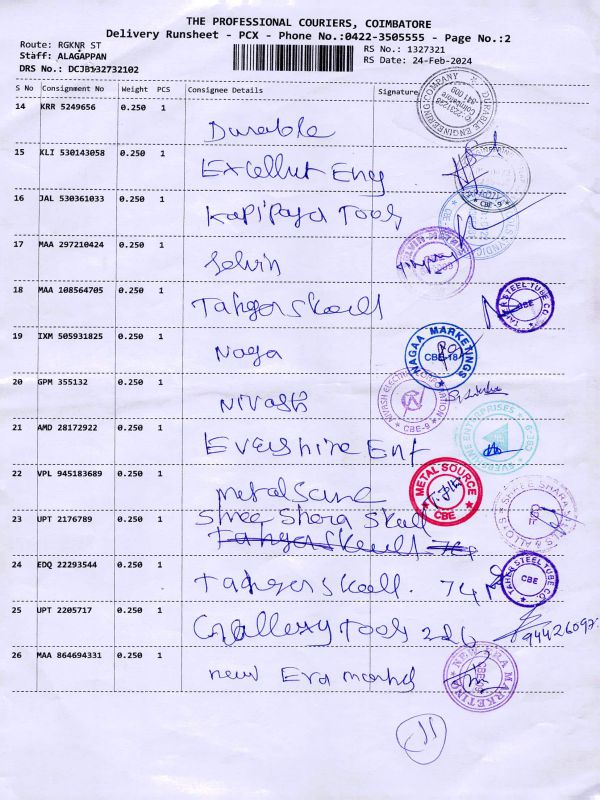 THE PROFESSIONAL COURIERS, COIMBATORE
Delivery Runsheet - PCX - Phone No.:0422-3505555 - Page No.:2
Route: RGKNR ST
RS No.: 1327321
Staff: ALAGAPPAN
RS Date: 24-Feb-2024
DRS No.: DCJB132732102
S No Consignment No Weight PCS Consignee Details Signature
14 KRR 5249656 0.250 1
Durable
DURABLE ENGINEERING COMPANY
15 KLI 530143058 0.250 1
Excellut Eng
CBE-9
16 JAL 530361033 0.250 1
Kapipaya Tools
17 MAA 297210424 0.250 1
Selvin
18 MAA 108564705 0.250 1
TAHER STEEL TUBE CO.
CBE
19 IXM 505931825 0.250 1
Naga
NAGAA MARKETINGS
CBE-18
20 GPM 355132 0.250 1
Nivash
NIVASH ELECTRICAL CORPORATION
CBE-9
21 AMD 28172922 0.250 1
Evershine Ent
EVERSHINE ENTERPRISES
22 VPL 945183689 0.250 1
metal
METAL SOURCE
CBE
23 UPT 2176789 0.250 1
Shree Shara Steel
24 EDQ 22293544 0.250 1
74
TAHER STEEL TUBE CO.
CBE
25 UPT 2205717 0.250 1
Gallexy Tools 226
94426097
26 MAA 864694331 0.250 1
new Era
NEW ERA MARKETING
11